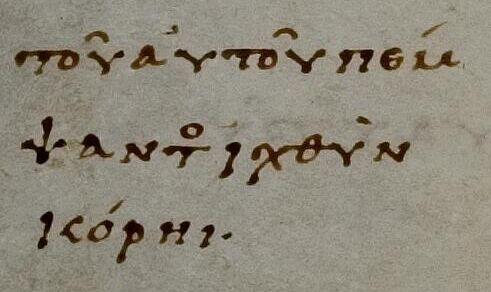 τοῦ αὐτοῦ πέμ
ψαντο ἰχθὺν
κόρηι.